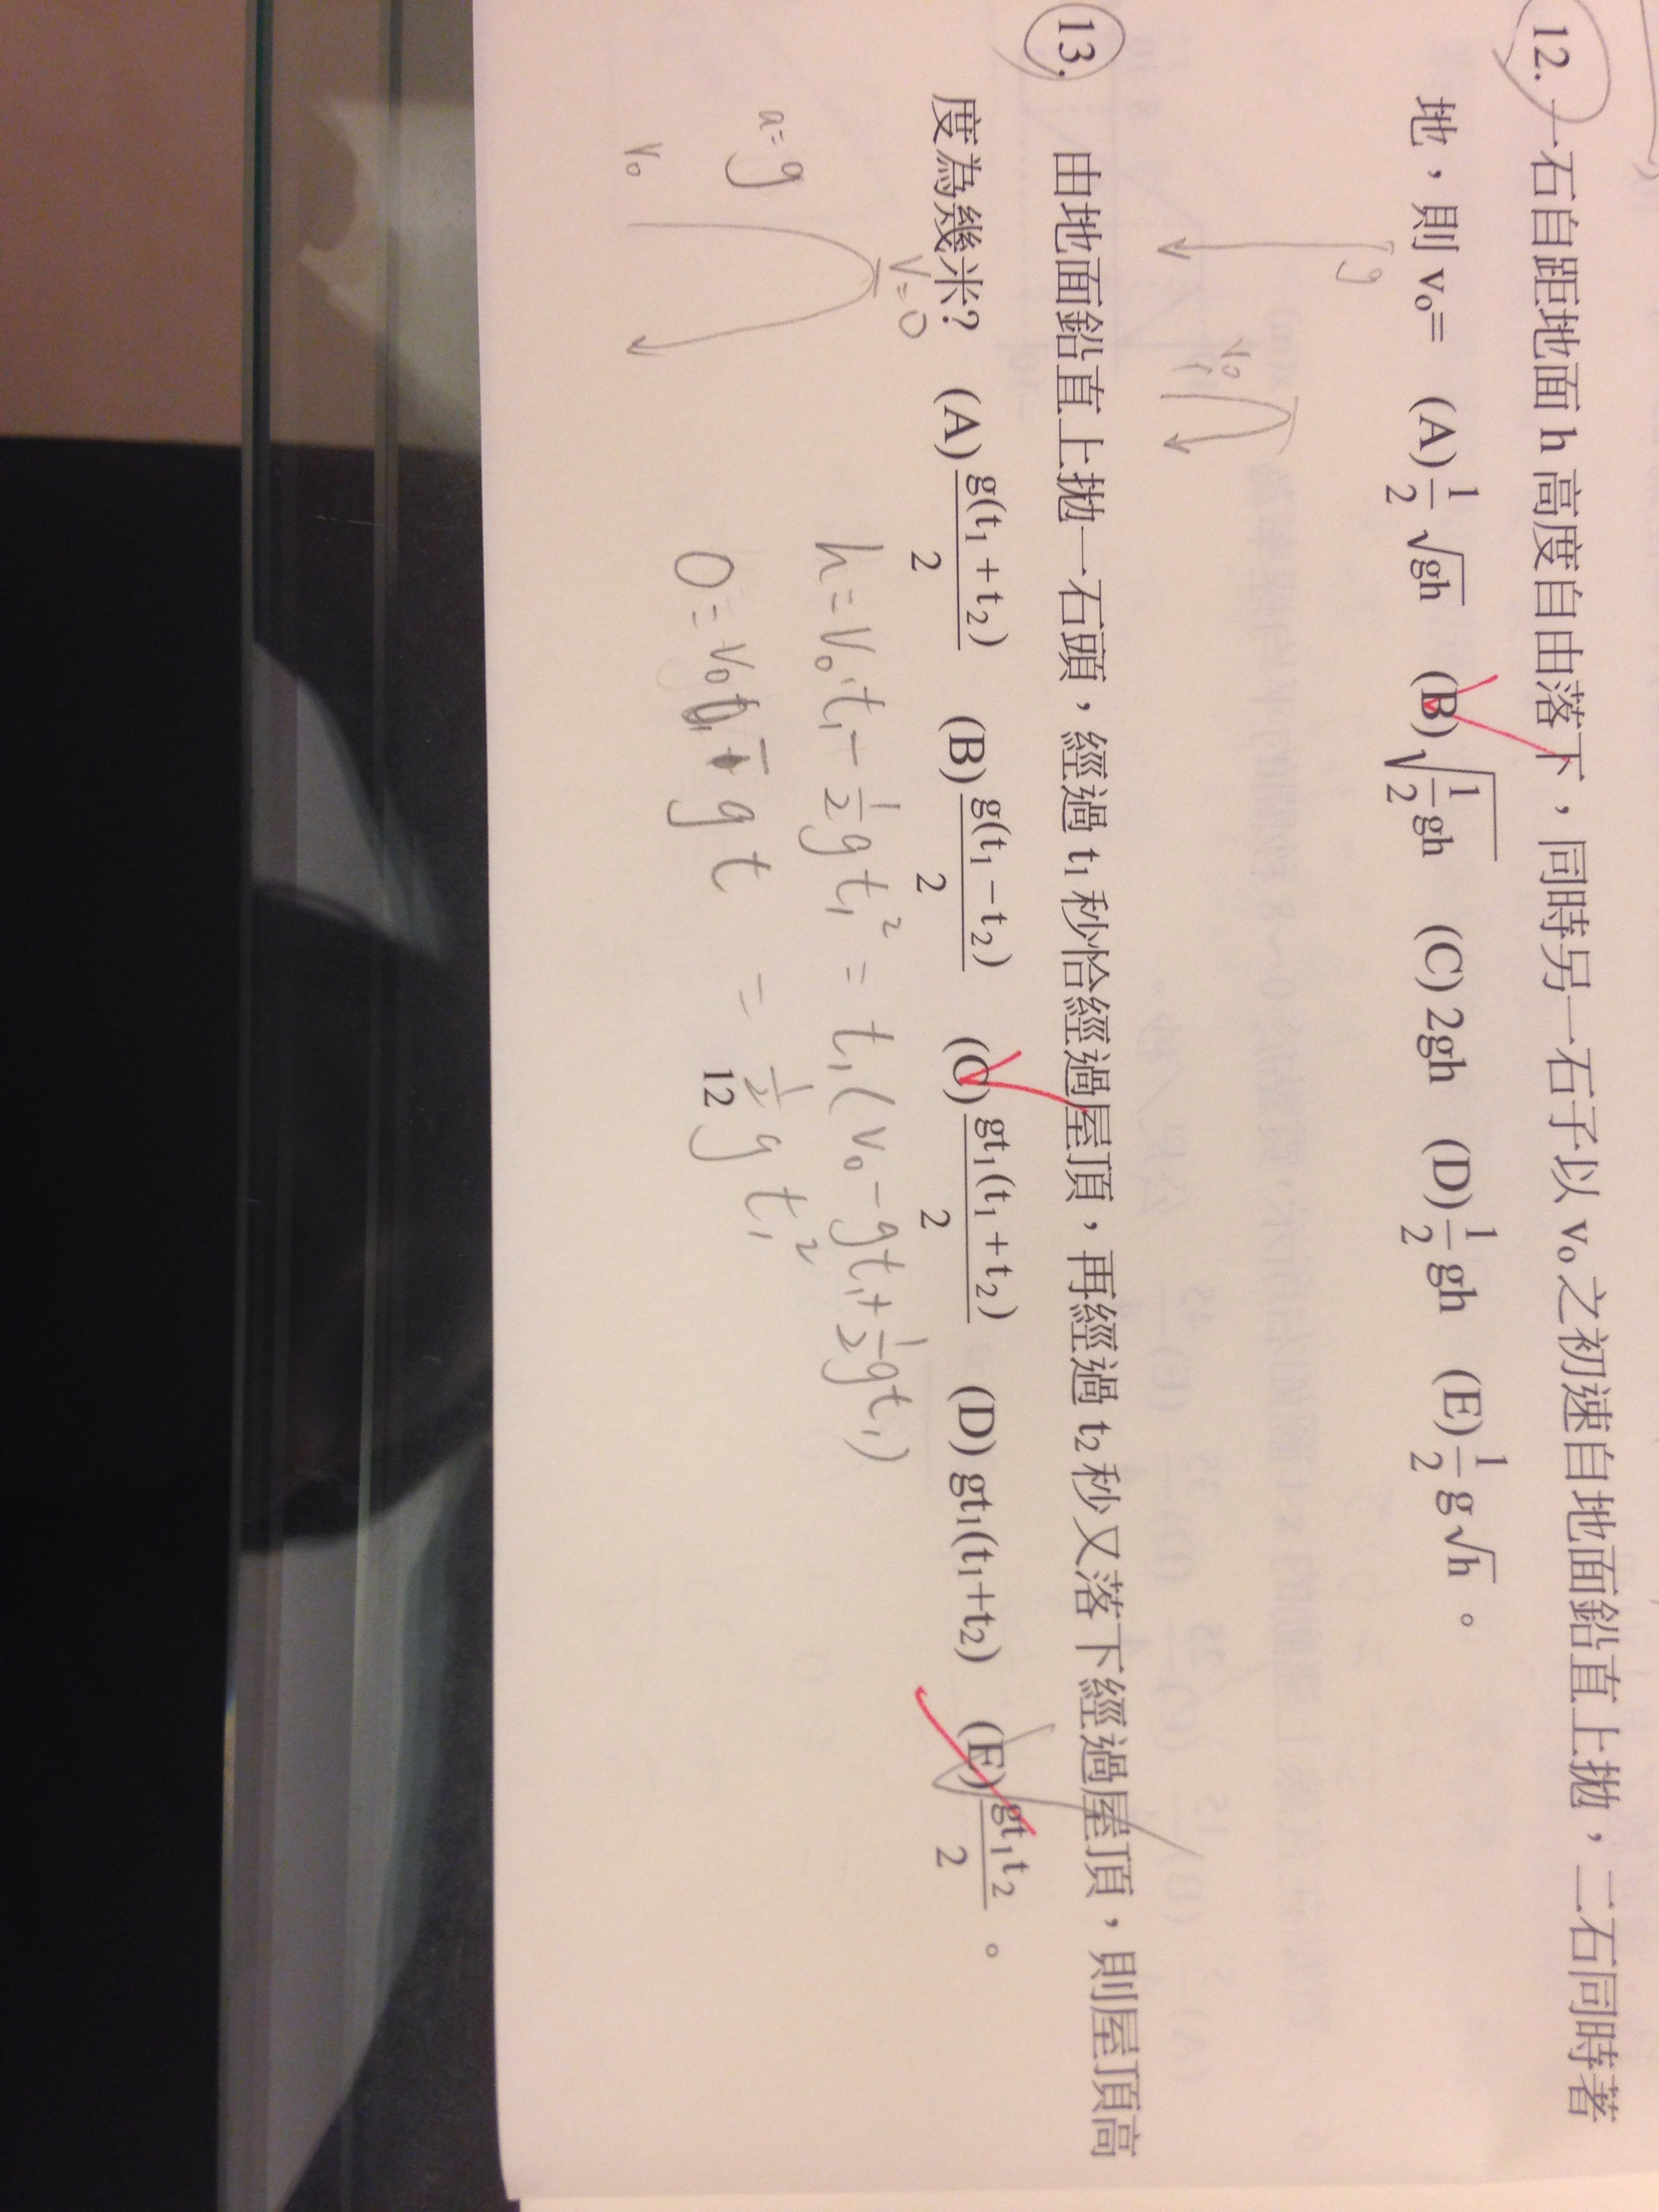 12. 一石自距地面 h 高度自由落下，同時另一石子以 v₀ 之初速自地面鉛直上拋，二石同時著
地，則 v₀= (A) 1/2 √gh (B) √(1/2 gh) (C) 2gh (D) 1/2 gh (E) 1/2 g√h 。
g
v₀
13. 由地面鉛直上拋一石頭，經過 t₁ 秒恰經過屋頂，再經過 t₂ 秒又落下經過屋頂，則屋頂高
度為幾米? (A) g(t₁+t₂)/2 (B) g(t₁−t₂)/2 (C) gt₁(t₁+t₂)/2 (D) gt₁(t₁+t₂) (E) gt₁t₂/2 。
V=0
a=g
V₀
h=V₀·t₁−1/2gt₁²=t₁(V₀−gt₁+1/2gt₁)
0=V₀−gt = 1/2gt₁²
12